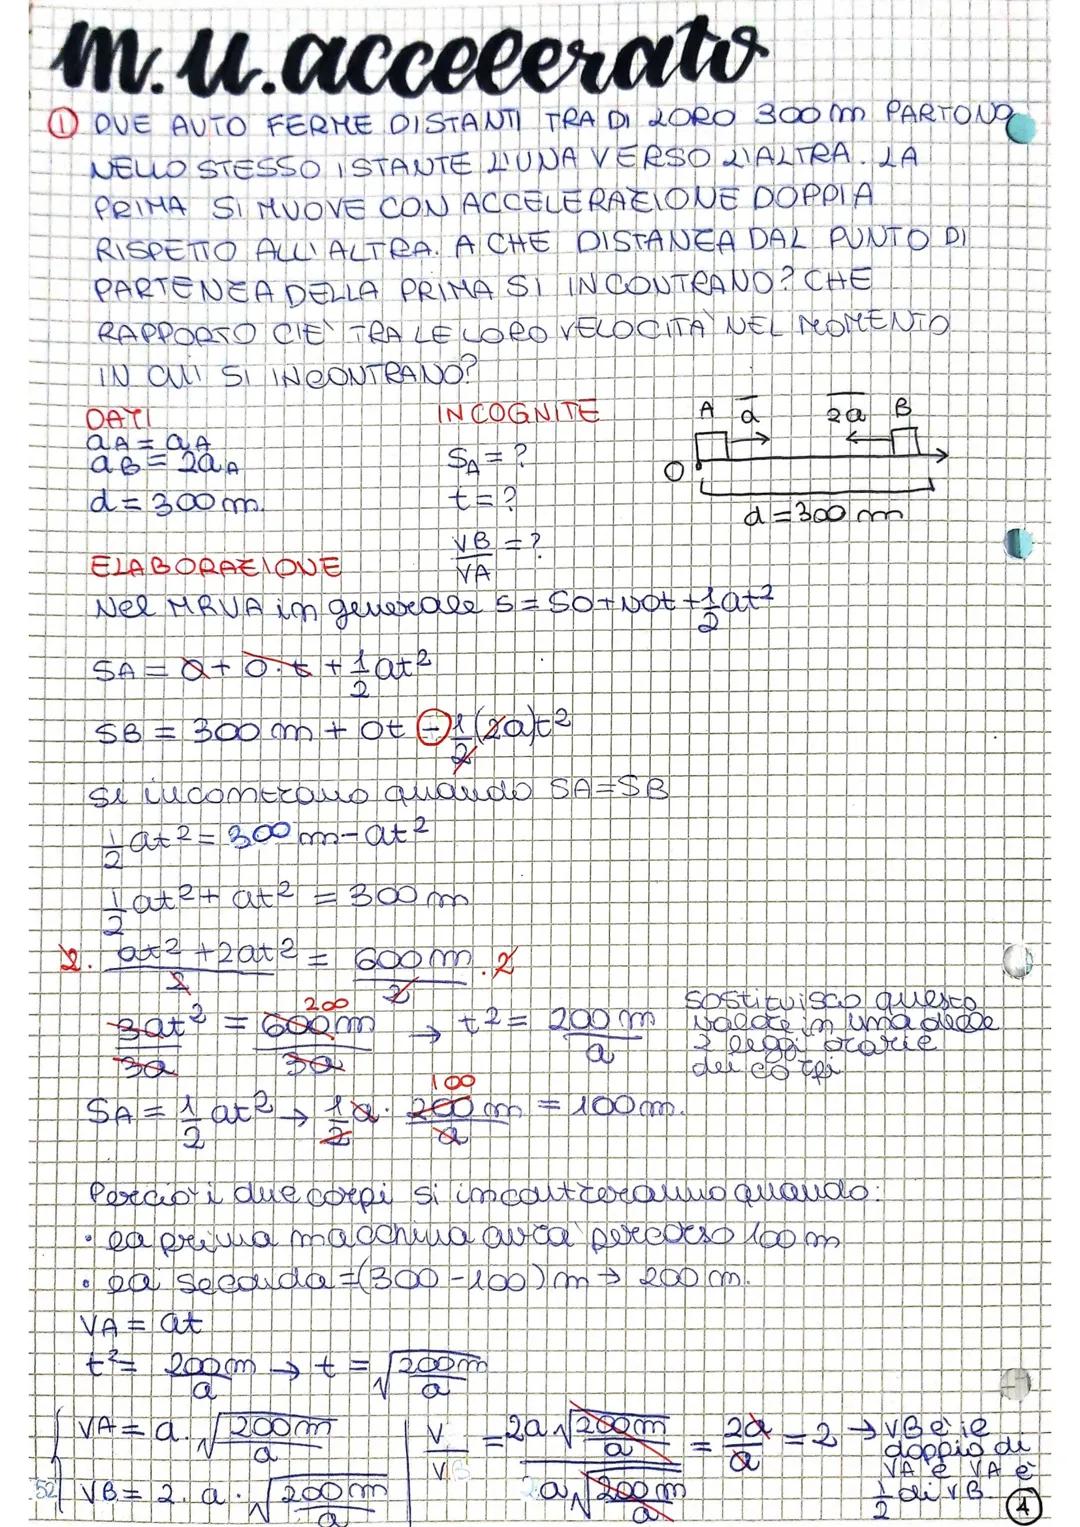 m.u.accelerato
① DUE AUTO FERME DISTANTI TRA DI LORO 300 m PARTONO
NELLO STESSO ISTANTE L'UNA VERSO L'ALTRA. LA
PRIMA SI MUOVE CON ACCELERAZIONE DOPPIA
RISPETTO ALL'ALTRA. A CHE DISTANZA DAL PUNTO DI
PARTENZA DELLA PRIMA SI INCONTRANO? CHE
RAPPORTO C'E' TRA LE LORO VELOCITA' NEL MOMENTO
IN CUI SI INCONTRANO?
DATI
aA = aA
aB = 2aA
d = 300 m.
INCOGNITE
SA = ?
t = ?
VB/VA = ?
A a 2a B
O
d = 300 m
ELABORAZIONE
Nel MRVA in generale s = so + vot + 1/2 at²
SA = 0 + 0·t + 1/2 at²
SB = 300 m + 0t - 1/2 (2a)t²
si incontrano quando SA = SB
1/2 at² = 300 m - at²
1/2 at² + at² = 300 m
2. (at² + 2at²)/2 = 600 m/2 . 2
3at²/3a = 600 m/3a 200 → t² = 200 m/a
sostituisco questo
valore in una delle
2 leggi orarie
dei corpi
SA = 1/2 at² → 1/2 a · 200 m/a 100 = 100 m.
Perciò i due corpi si incontreranno quando:
• la prima macchina avrà percorso 100 m
• la seconda = (300 - 100) m → 200 m.
VA = at
t² = 200 m/a → t = √(200 m/a)
VA = a · √(200 m/a)
VB = 2 · a · √(200 m/a)
V/V = 2a √(200 m/a) / a √(200 m/a) = 2a/a = 2 → VB è il
doppio di
VA e VA è
1/2 di VB.
52
1